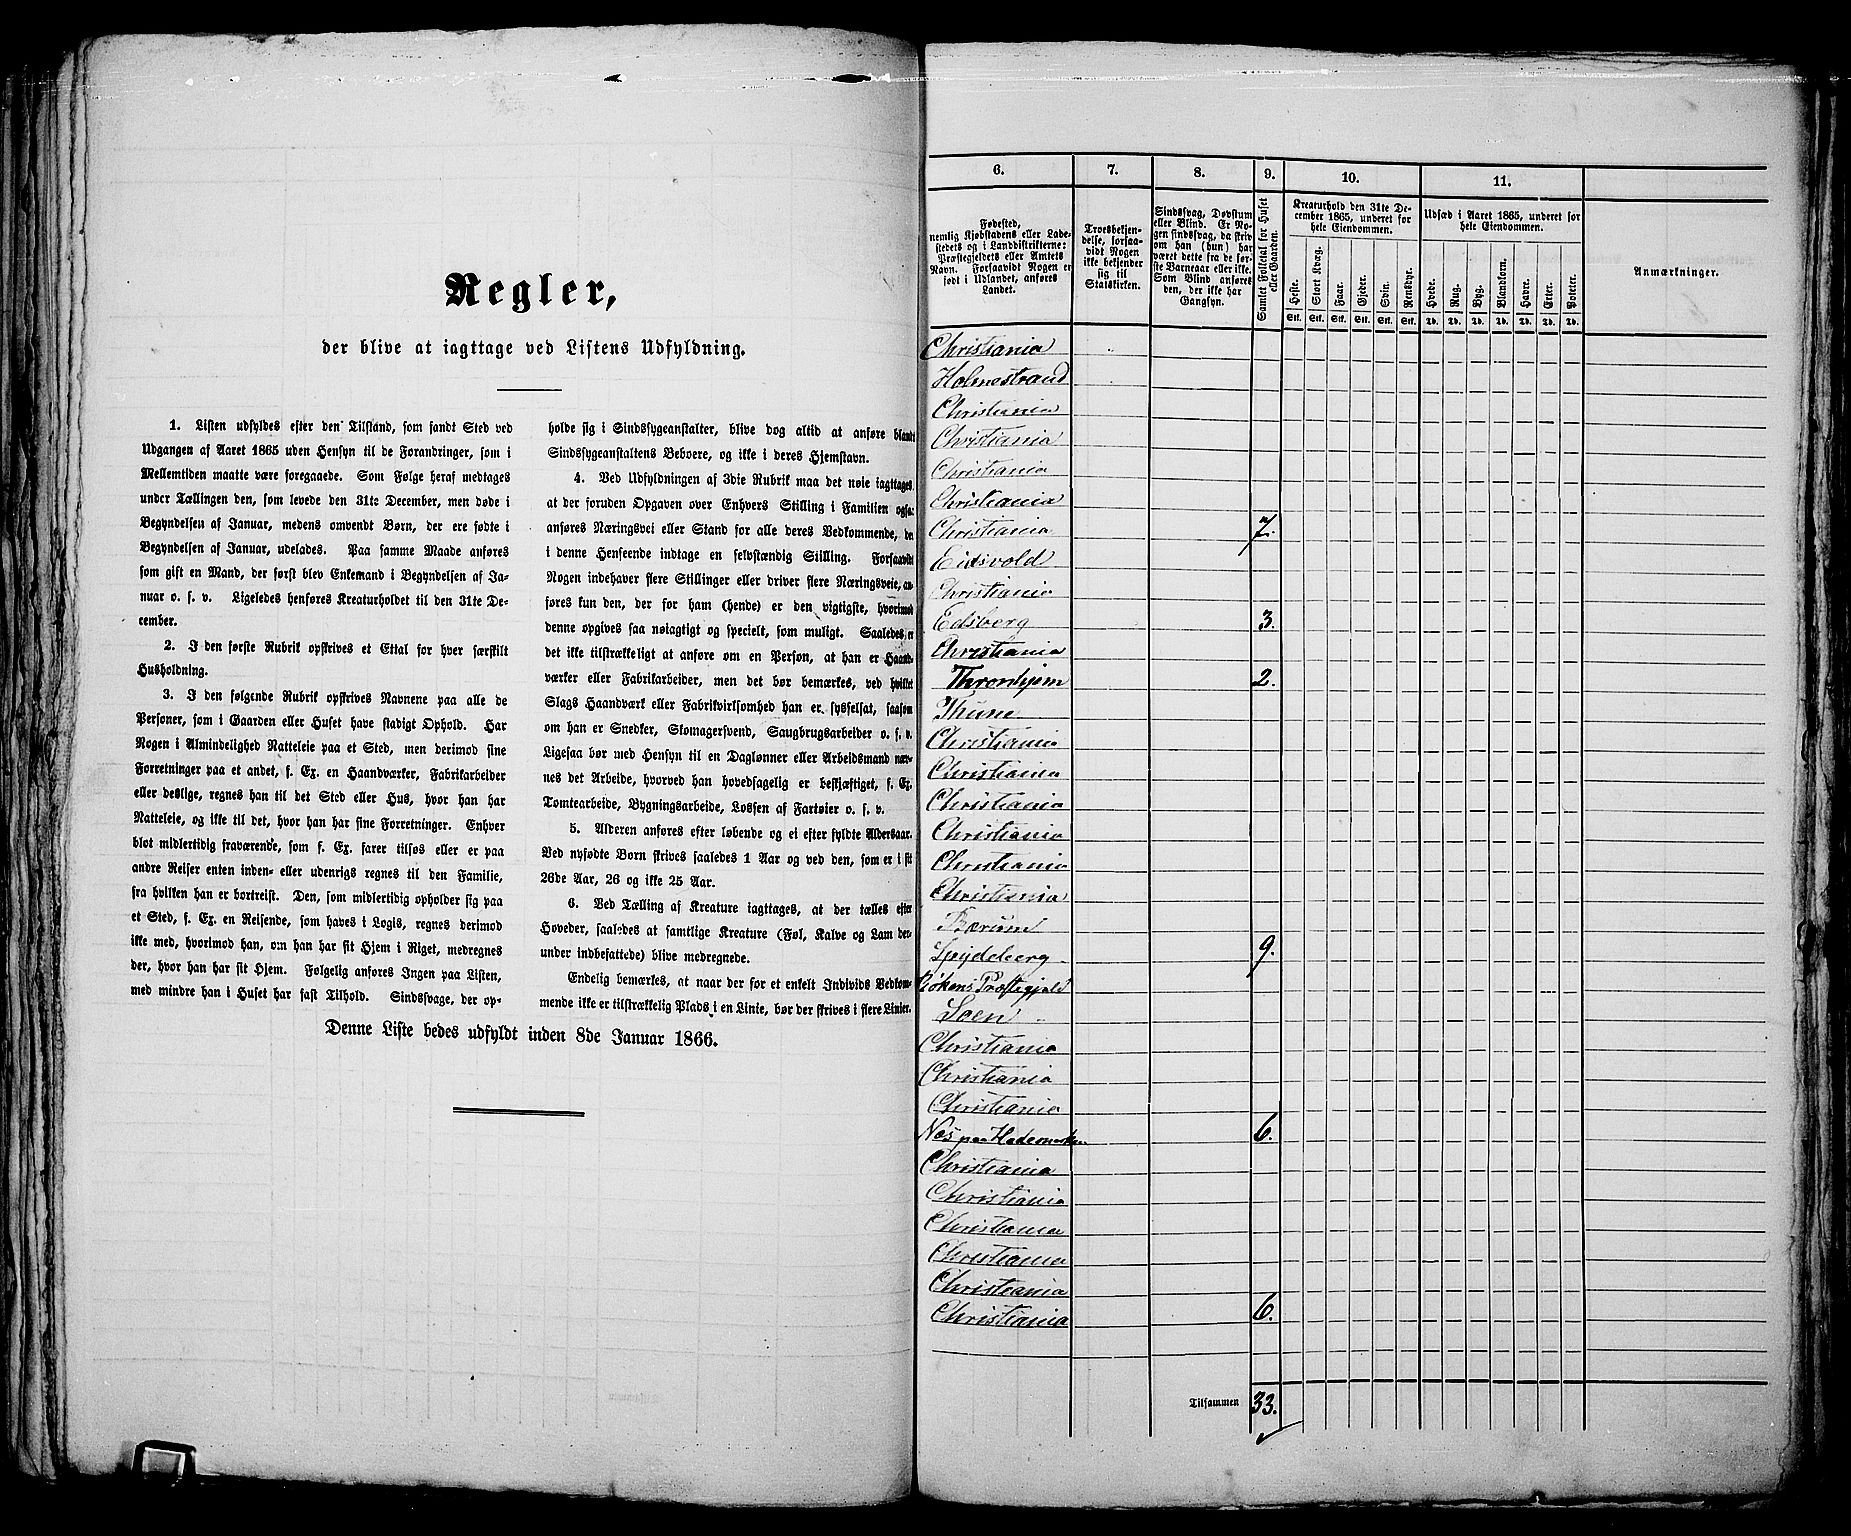 Regler,
der blive at iagttage ved Listens Udfyldning.
1. Listen udfyldes efter den Tilstand, som fandt Sted ved
Udgangen af Aaret 1865 uden Hensyn til de Forandringer, som i
Mellemtiden maatte være foregaaede. Som Følge heraf medtages
under Tællingen den, som levede den 31te December, men døde i
Begyndelsen af Januar, medens omvendt Børn, der ere fødte i
Begyndelsen af Januar, udelades. Paa samme Maade anføres
som gift en Mand, der først blev Enkemand i Begyndelsen af Ja-
nuar o. s. v. Ligeledes henføres Kreaturholdet til den 31te De-
cember.
2. I den første Rubrik opskrives et Ettal for hver særskilt
Husholdning.
3. I den følgende Rubrik opskrives Navnene paa alle de
Personer, som i Gaarden eller Huset have stadigt Ophold. Har
Nogen i Almindelighed Natteleie paa et Sted, men derimod sine
Forretninger paa et andet, f. Ex. en Haandværker, Fabrikarbeider
eller deslige, regnes han til det Sted eller Hus, hvor han har
Natteleie, og ikke til det, hvor han har sine Forretninger. Enhver
blot midlertidig fraværende, som f. Ex. farer tilsøs eller er paa
andre Reiser enten inden- eller udenrigs regnes til den Familie,
fra hvilken han er bortreist. Den, som midlertidig opholder sig paa
et Sted, f. Ex. en Reisende, som haves i Logis, regnes derimod
ikke med, hvorimod han, om han har sit Hjem i Riget, medregnes
der, hvor han har sit Hjem. Følgelig anføres Ingen paa Listen,
med mindre han i Huset har fast Tilhold. Sindssvage, der op-
holde sig i Sindssygeanstalter, blive dog altid at anføre blandt
Sindssygeanstaltens Beboere, og ikke i deres Hjemstavn.
4. Ved Udfyldningen af 3die Rubrik maa det nøie iagttages,
at der foruden Opgaven over Enhvers Stilling i Familien ogsaa
anføres Næringsvei eller Stand for alle deres Vedkommende, der
i denne Henseende indtage en selvstændig Stilling. Forsaavidt
Nogen indehaver flere Stillinger eller driver flere Næringsveie, an-
føres kun den, der for ham (hende) er den vigtigste, hvorimod
denne opgives saa nøiagtigt og specielt, som muligt. Saaledes er
det ikke tilstrækkeligt at anføre om en Person, at han er Haand-
værker eller Fabrikarbeider, men det bør bemærkes, ved hvilket
Slags Haandværk eller Fabrikvirksomhed han er sysselsat, saasom
om han er Snedker, Skomagersvend, Saugbrugsarbeider o. s. v.
Ligesaa bør med Hensyn til en Dagløner eller Arbeidsmand næv-
nes det Arbeide, hvorved han hovedsagelig er beskjæftiget, f. Ex.
Tomtearbeide, Bygningsarbeide, Lossen af Fartøier o. s. v.
5. Alderen anføres efter løbende og ei efter fyldte Aldersaar.
Ved nyfødte Børn skrives saaledes 1 Aar og ved den, som er i sit
26de Aar, 26 og ikke 25 Aar.
6. Ved Tælling af Kreature iagttages, at der tælles efter
Hoveder, saaledes at samtlige Kreature (Føl, Kalve og Lam der-
under indbefattede) blive medregnede.
Endelig bemærkes, at naar der for et enkelt Individs Vedkom-
mende ikke er tilstrækkelig Plads i en Linie, bør der skrives i flere Linier.
Denne Liste bedes udfyldt inden 8de Januar 1866.
6. 7. 8. 9. 10. 11.
Fødested,
nemlig Kjøbstadens eller Lade-
stedets og i Landdistrikterne:
Præstegjeldets eller Amtets
Navn. Forsaavidt Nogen er
født i Udlandet, anføres
Landet.
Troesbekjen-
delse, forsaa-
vidt Nogen
ikke bekjender
sig til
Statskirken.
Sindssvag, Døvstum
eller Blind. Er No-
gen sindssvag, da skriv
om han (hun) har
været dette fra de før-
ste Barneaar eller ikke.
Som Blind anføres
den, der ikke har
Gangsyn.
Samlet Folketal for Huset
eller Gaarden.
Kreaturhold den 31te De-
cember 1865, underet for
hele Eiendommen.
Heste. Stort Kvæg. Faar. Gjeder. Svin. Rensdyr.
Stk. Stk. Stk. Stk. Stk. Stk.
Udsæd i Aaret 1865, underet for
hele Eiendommen.
Hvede. Rug. Byg. Blandkorn. Havre. Erter. Poteter.
Td. Td. Td. Td. Td. Td. Td.
Anmærkninger.
Christiania
Holmestrand
Christiania
Christiania
Christiania
Christiania
Christiania 7.
Eidsvold
Christiania
Edsberg 3.
Christiania
Thronhjem 2.
Thune
Christiania
Christiania
Christiania
Christiania
Christiania
Christiania
Bærum
Spydeberg 9.
Præstegjeld
Soen
Christiania
Christiania
Christiania
Nes paa Hedemarken 6.
Christiania
Christiania
Christiania
Christiania
Christiania
Christiania 6.
Tilsammen 33.